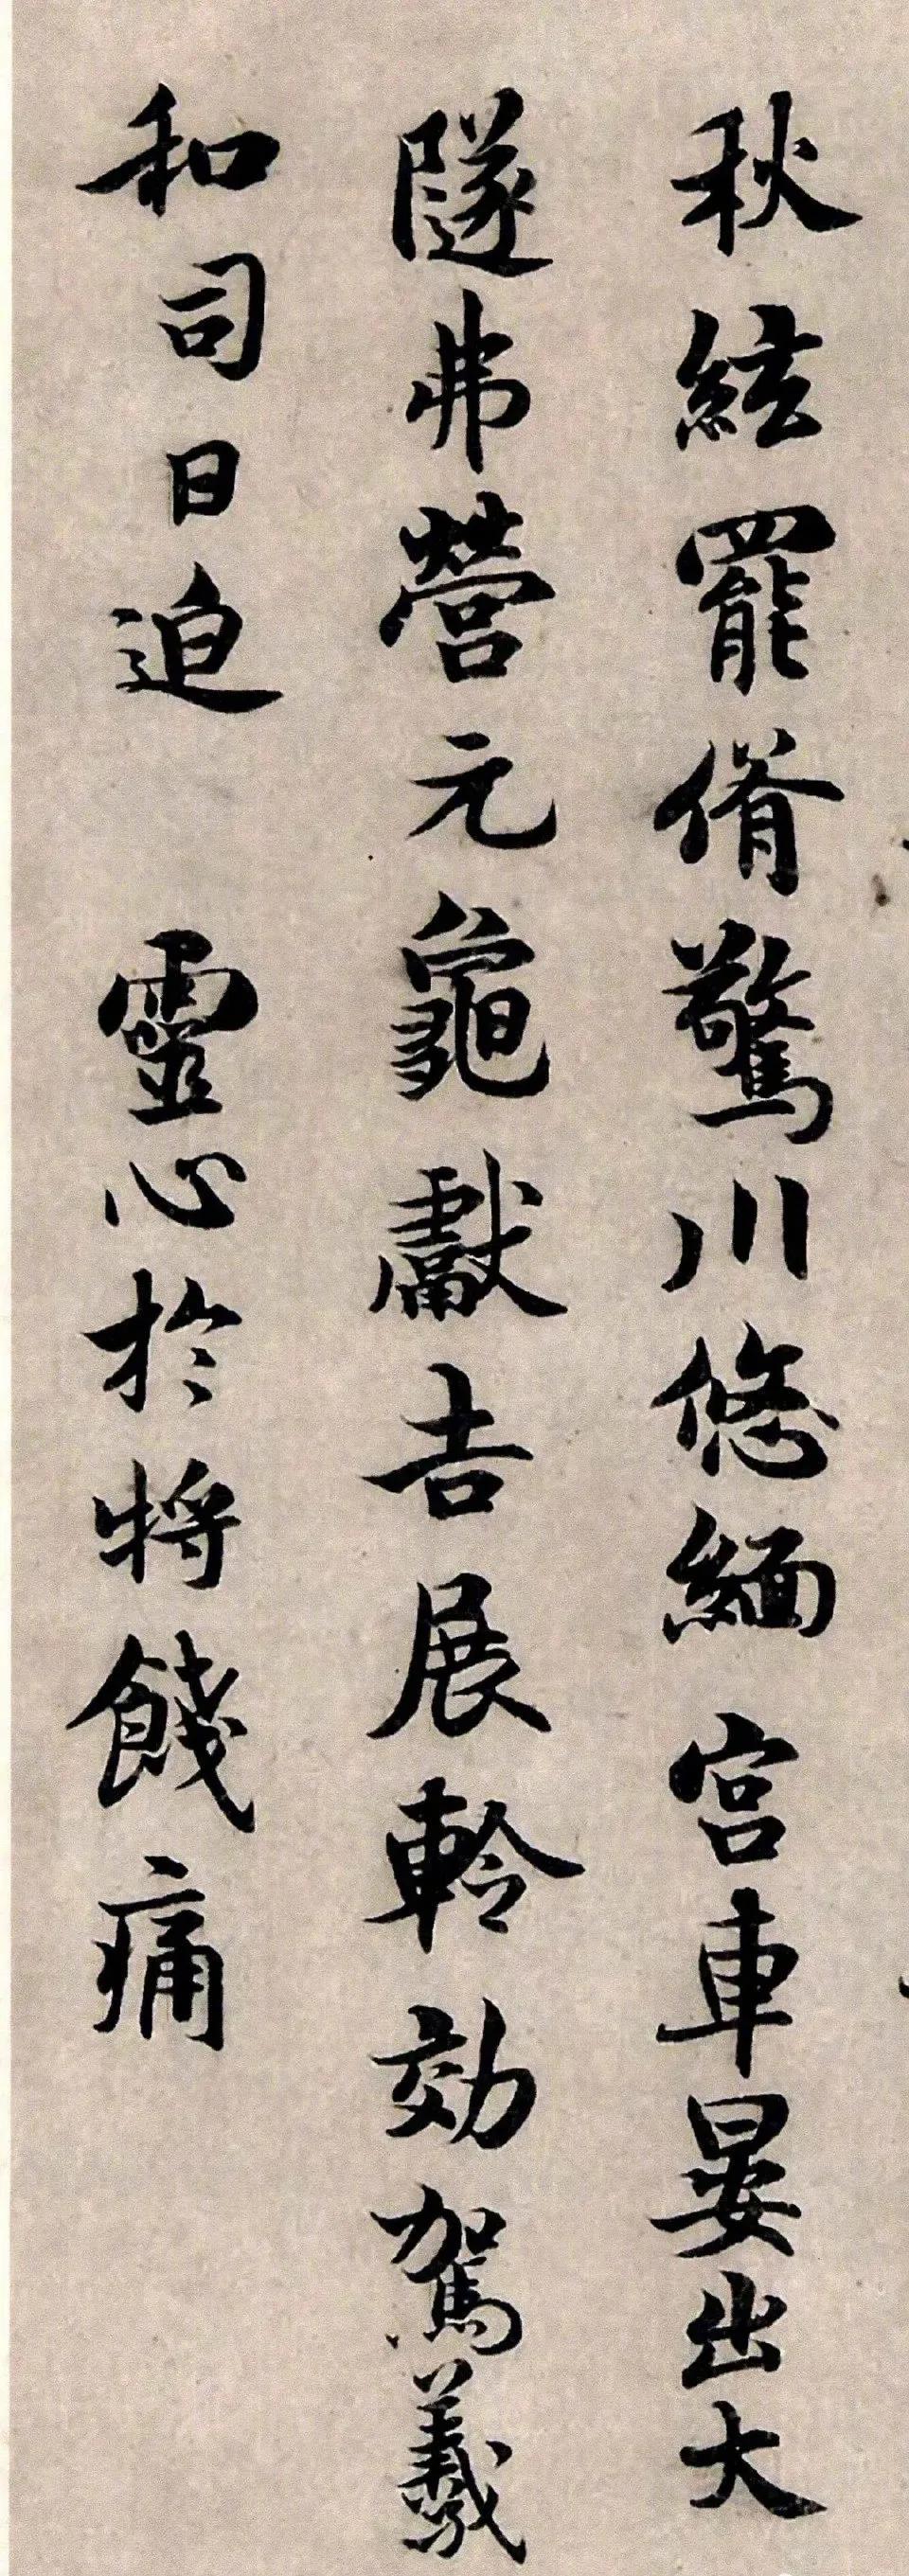 秋絃罷倄驚川悠緬宮車晏出大
隧弗營元龜獻吉展軨効駕羲
和司日迫 靈心於將餞痛